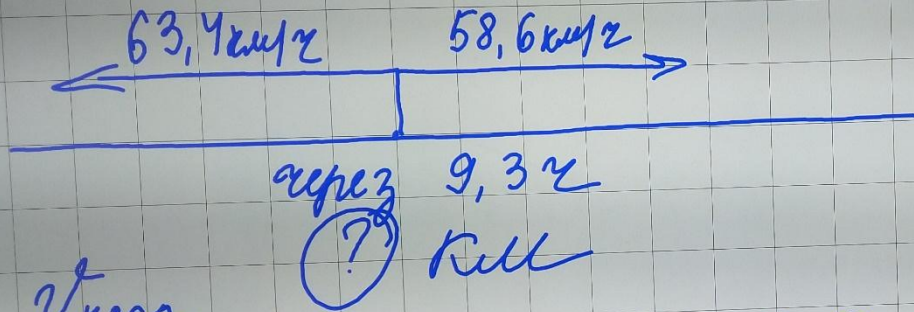 63,4 км/ч 58,6 км/ч
через 9,3 ч
? км